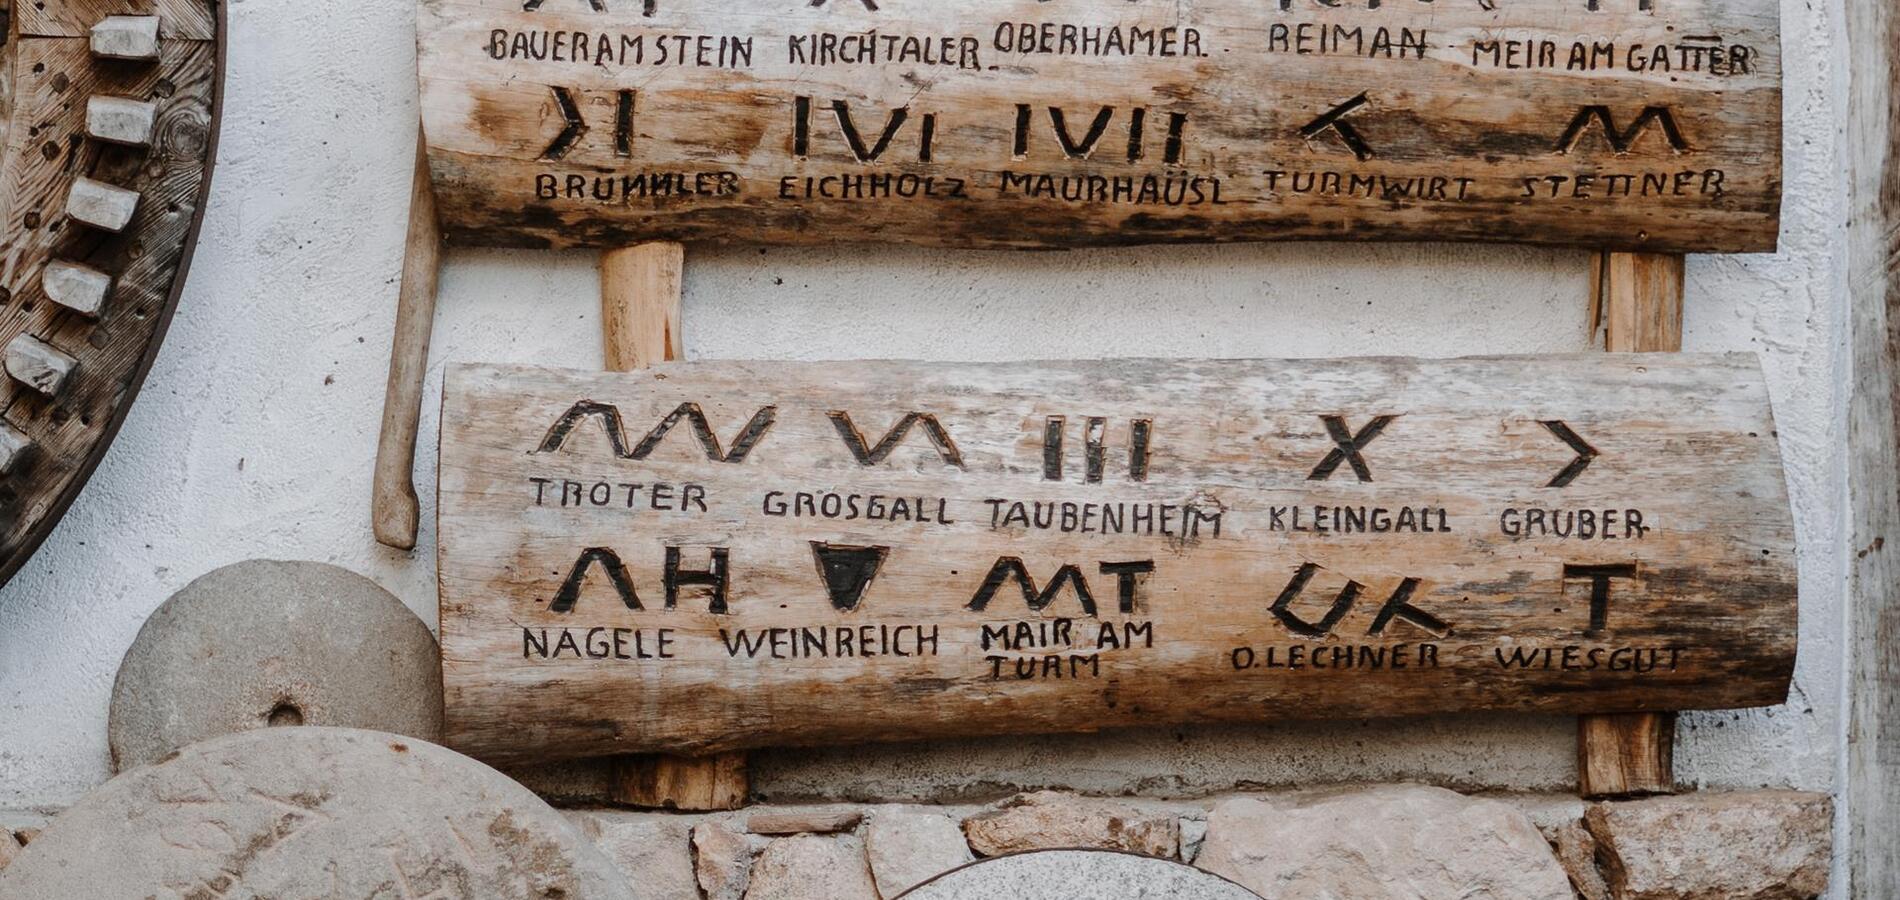 BAUER AM STEIN KIRCHTALER OBERHAMER. REIMAN MEIR AM GATTER
IVI IVII
BRÜNNLER EICHHOLZ MAURHÄUSL TURMWIRT STETTNER
III X >
TROTER GROSGALL TAUBENHEIM KLEINGALL GRUBER
H T T
NAGELE WEINREICH MAIR AM O.LECHNER WIESGUT
TURM